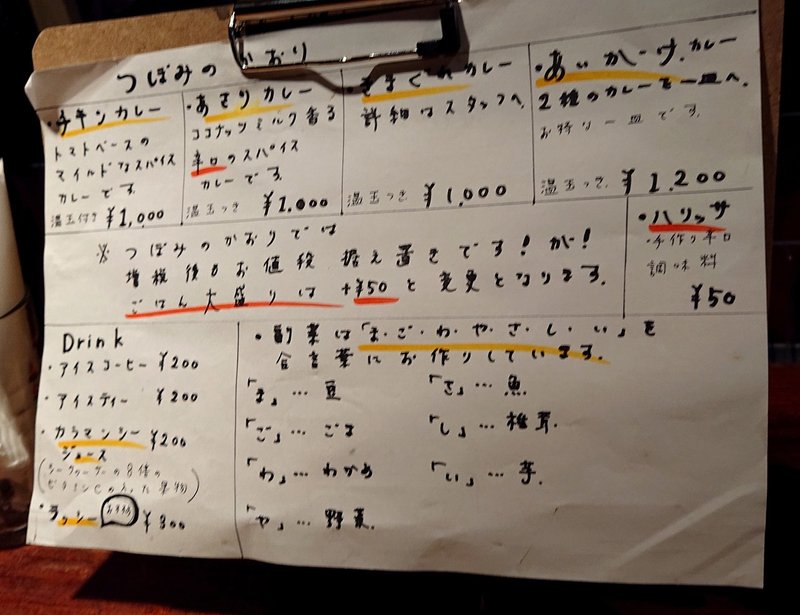 つぼみのかおり
・チキンカレー
トマトベースの
マイルドなスパイス
カレーです
温玉付き ¥1,000
・あさりカレー
ココナッツミルク香る
辛口のスパイス
カレーです
温玉つき ¥1,000
・きまぐれカレー
詳細はスタッフへ
温玉つき ¥1,000
・あいがけカレー
2種のカレーを一皿へ。
お得な一皿です。
温玉つき ¥1,200
※つぼみのかおりでは
増税後もお値段据え置きです!が!
ごはん大盛りは +¥50 と変更となります。
・ハリッサ
・手作り辛口
調味料
¥50
Drink
・アイスコーヒー ¥200
・アイスティー ¥200
・カラマンシー
ジュース ¥200
(シークヮーサーの8倍の
ビタミンCの入った果物)
・ラッシー おすすめ ¥300
・副菜は「ま・ご・わ・や・さ・し・い」を
合言葉にお作りしています。
「ま」… 豆
「ご」… ごま
「わ」… わかめ
「や」… 野菜
「さ」… 魚
「し」… 椎茸
「い」… 芋